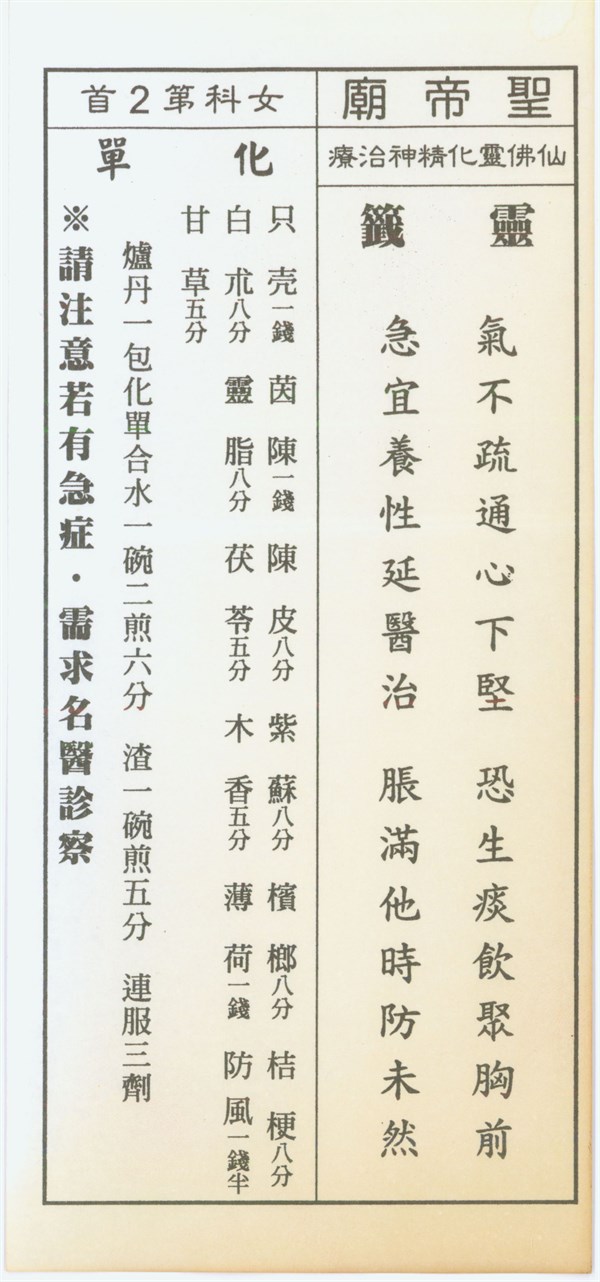 聖帝廟
仙佛靈化精神治療
靈籤
氣不疏通心下堅 恐生痰飲聚胸前
急宜養性延醫治 脹滿他時防未然
女科第2首
化單
只壳一錢 茵陳一錢 陳皮八分 紫蘇八分 檳榔八分 桔梗八分
白朮八分 靈脂八分 茯苓五分 木香五分 薄荷一錢 防風一錢半
甘草五分
爐丹一包化單合水一碗二煎六分 渣一碗煎五分 連服三劑
※請注意若有急症．需求名醫診察